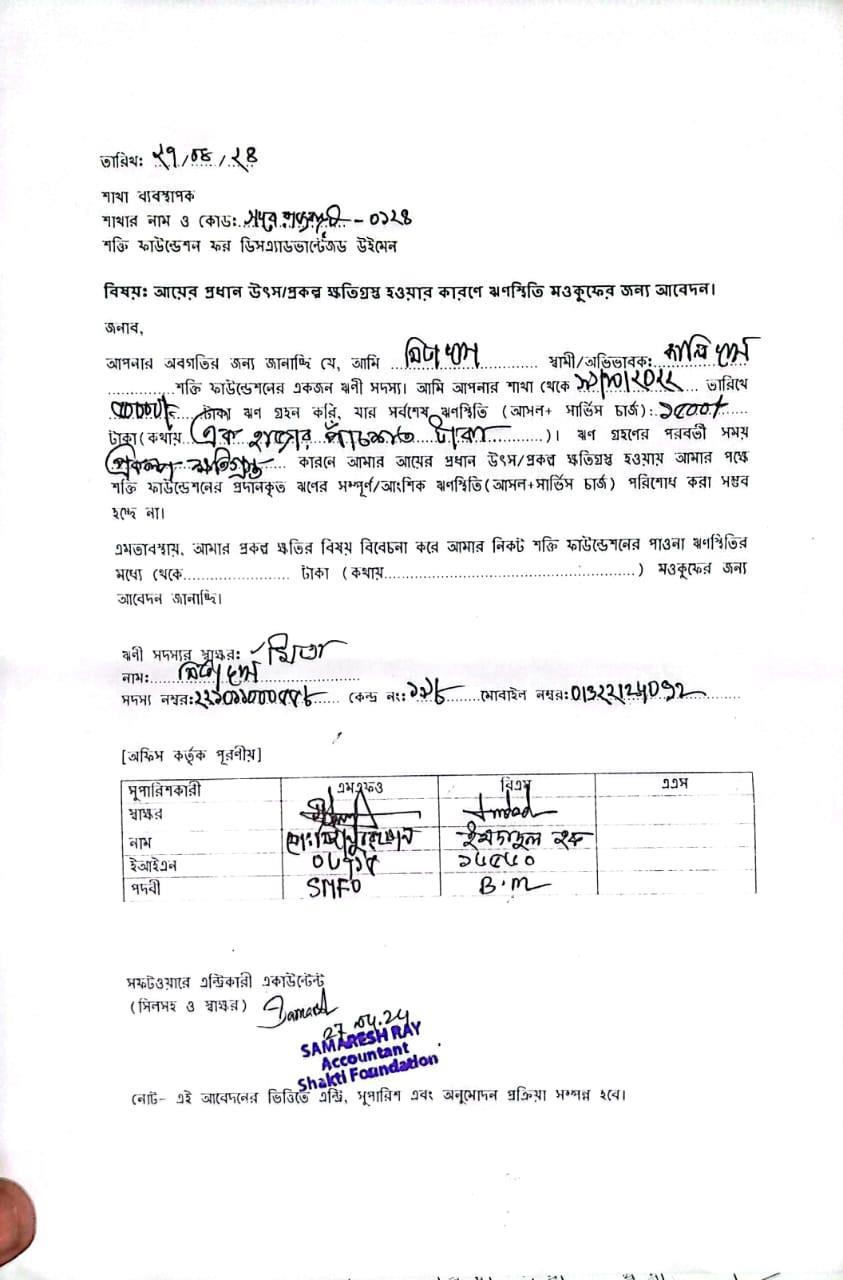 তারিখ: ২৭/০৪/২৪
শাখা ব্যবস্থাপক
শাখার নাম ও কোড: - ০১২৪
শক্তি ফাউন্ডেশন ফর ডিসএ্যাডভান্টেজড উইমেন
বিষয়: আয়ের প্রধান উৎস/প্রকল্প ক্ষতিগ্রস্থ হওয়ার কারণে ঋণস্থিতি মওকুফের জন্য আবেদন।
জনাব,
আপনার অবগতির জন্য জানাচ্ছি যে, আমি স্বামী/অভিভাবক:
শক্তি ফাউন্ডেশনের একজন ঋণী সদস্য। আমি আপনার শাখা থেকে তারিখে
টাকা ঋণ গ্রহন করি, যার সর্বশেষ ঋণস্থিতি (আসল+ সার্ভিস চার্জ): ১৫০০/
টাকা(কথায় এক হাজার পাঁচশত টাকা)। ঋণ গ্রহণের পরবর্তী সময়
প্রকল্প ক্ষতিগ্রস্ত কারনে আমার আয়ের প্রধান উৎস/প্রকল্প ক্ষতিগ্রস্থ হওয়ায় আমার পক্ষে
শক্তি ফাউন্ডেশনের প্রদানকৃত ঋণের সম্পূর্ণ/আংশিক ঋণস্থিতি(আসল+সার্ভিস চার্জ) পরিশোধ করা সম্ভব
হচ্ছে না।
এমতাবস্থায়, আমার প্রকল্প ক্ষতির বিষয় বিবেচনা করে আমার নিকট শক্তি ফাউন্ডেশনের পাওনা ঋণস্থিতির
মধ্যে থেকে........................ টাকা (কথায়........................................................) মওকুফের জন্য
আবেদন জানাচ্ছি।
ঋণী সদস্যর স্বাক্ষর: মিতা
নাম:
সদস্য নম্বর: কেন্দ্র নং: মোবাইল নম্বর:
[অফিস কর্তৃক পূরণীয়]
সুপারিশকারী এমএফও বিএম এএম
স্বাক্ষর
নাম ইমদাদুল হক
ইআইএন
পদবী SMFO B.M
সফটওয়ারে এন্ট্রিকারী একাউন্টেন্ট
(সিলসহ ও স্বাক্ষর)
27.04.24
SAMARESH RAY
Accountant
Shakti Foundation
নোট- এই আবেদনের ভিত্তিতে এন্ট্রি, সুপারিশ এবং অনুমোদন প্রক্রিয়া সম্পন্ন হবে।